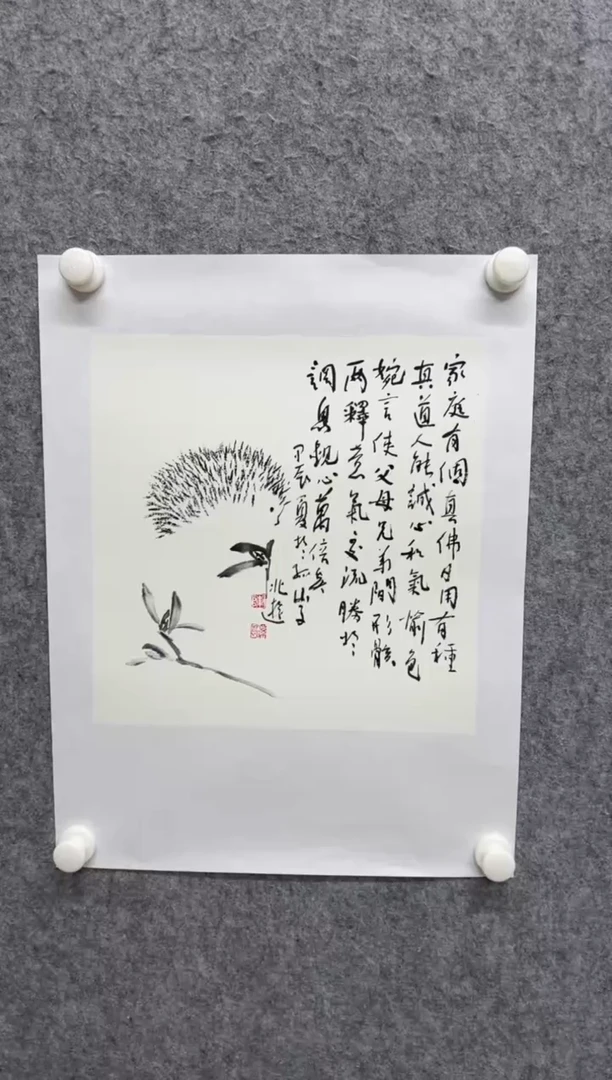 家庭有個真佛日用有種
真道人能誠心和氣愉色
婉言使父母兄弟間形骸
兩釋意氣交流勝於
調息觀心萬倍矣
甲辰夏於